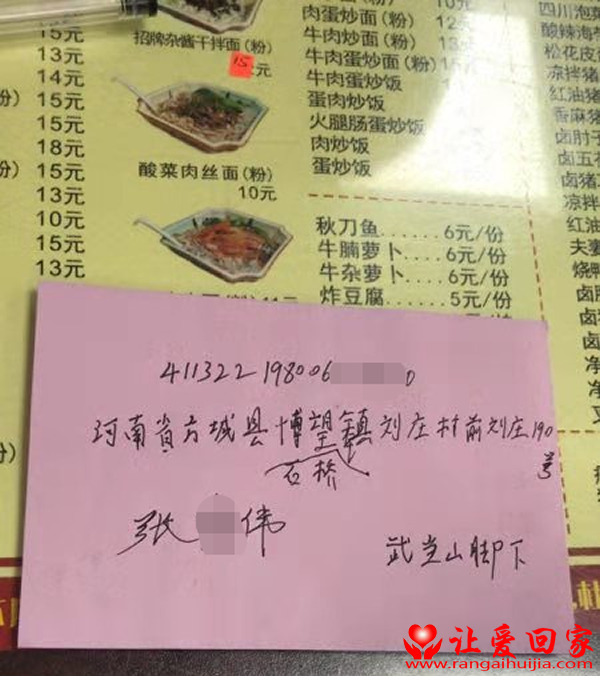 15元
13元
14元
15元
15元
18元
15元
13元
10元
15元
13元
招牌杂酱干拌面(粉)
15元
酸菜肉丝面(粉)
10元
肉蛋炒面(粉)
12元
牛肉炒面(粉)
牛肉蛋炒面(粉)
牛肉蛋炒饭
蛋肉炒饭
火腿肠蛋炒饭
肉炒饭
蛋炒饭
秋刀鱼......6元/份
牛腩萝卜....6元/份
牛杂萝卜....6元/份
炸豆腐......5元/份
四川泡菜
酸辣海带
松花皮
凉拌猪
红油猪
香麻猪
卤肘子
卤五
卤猪
凉拌
红油
夫妻
烧鸭
卤
411322 198006 0
河南省方城县博望镇刘庄村前刘庄190号
石桥
张 伟
武当山脚下
让爱回家
www.rangaihuijia.com